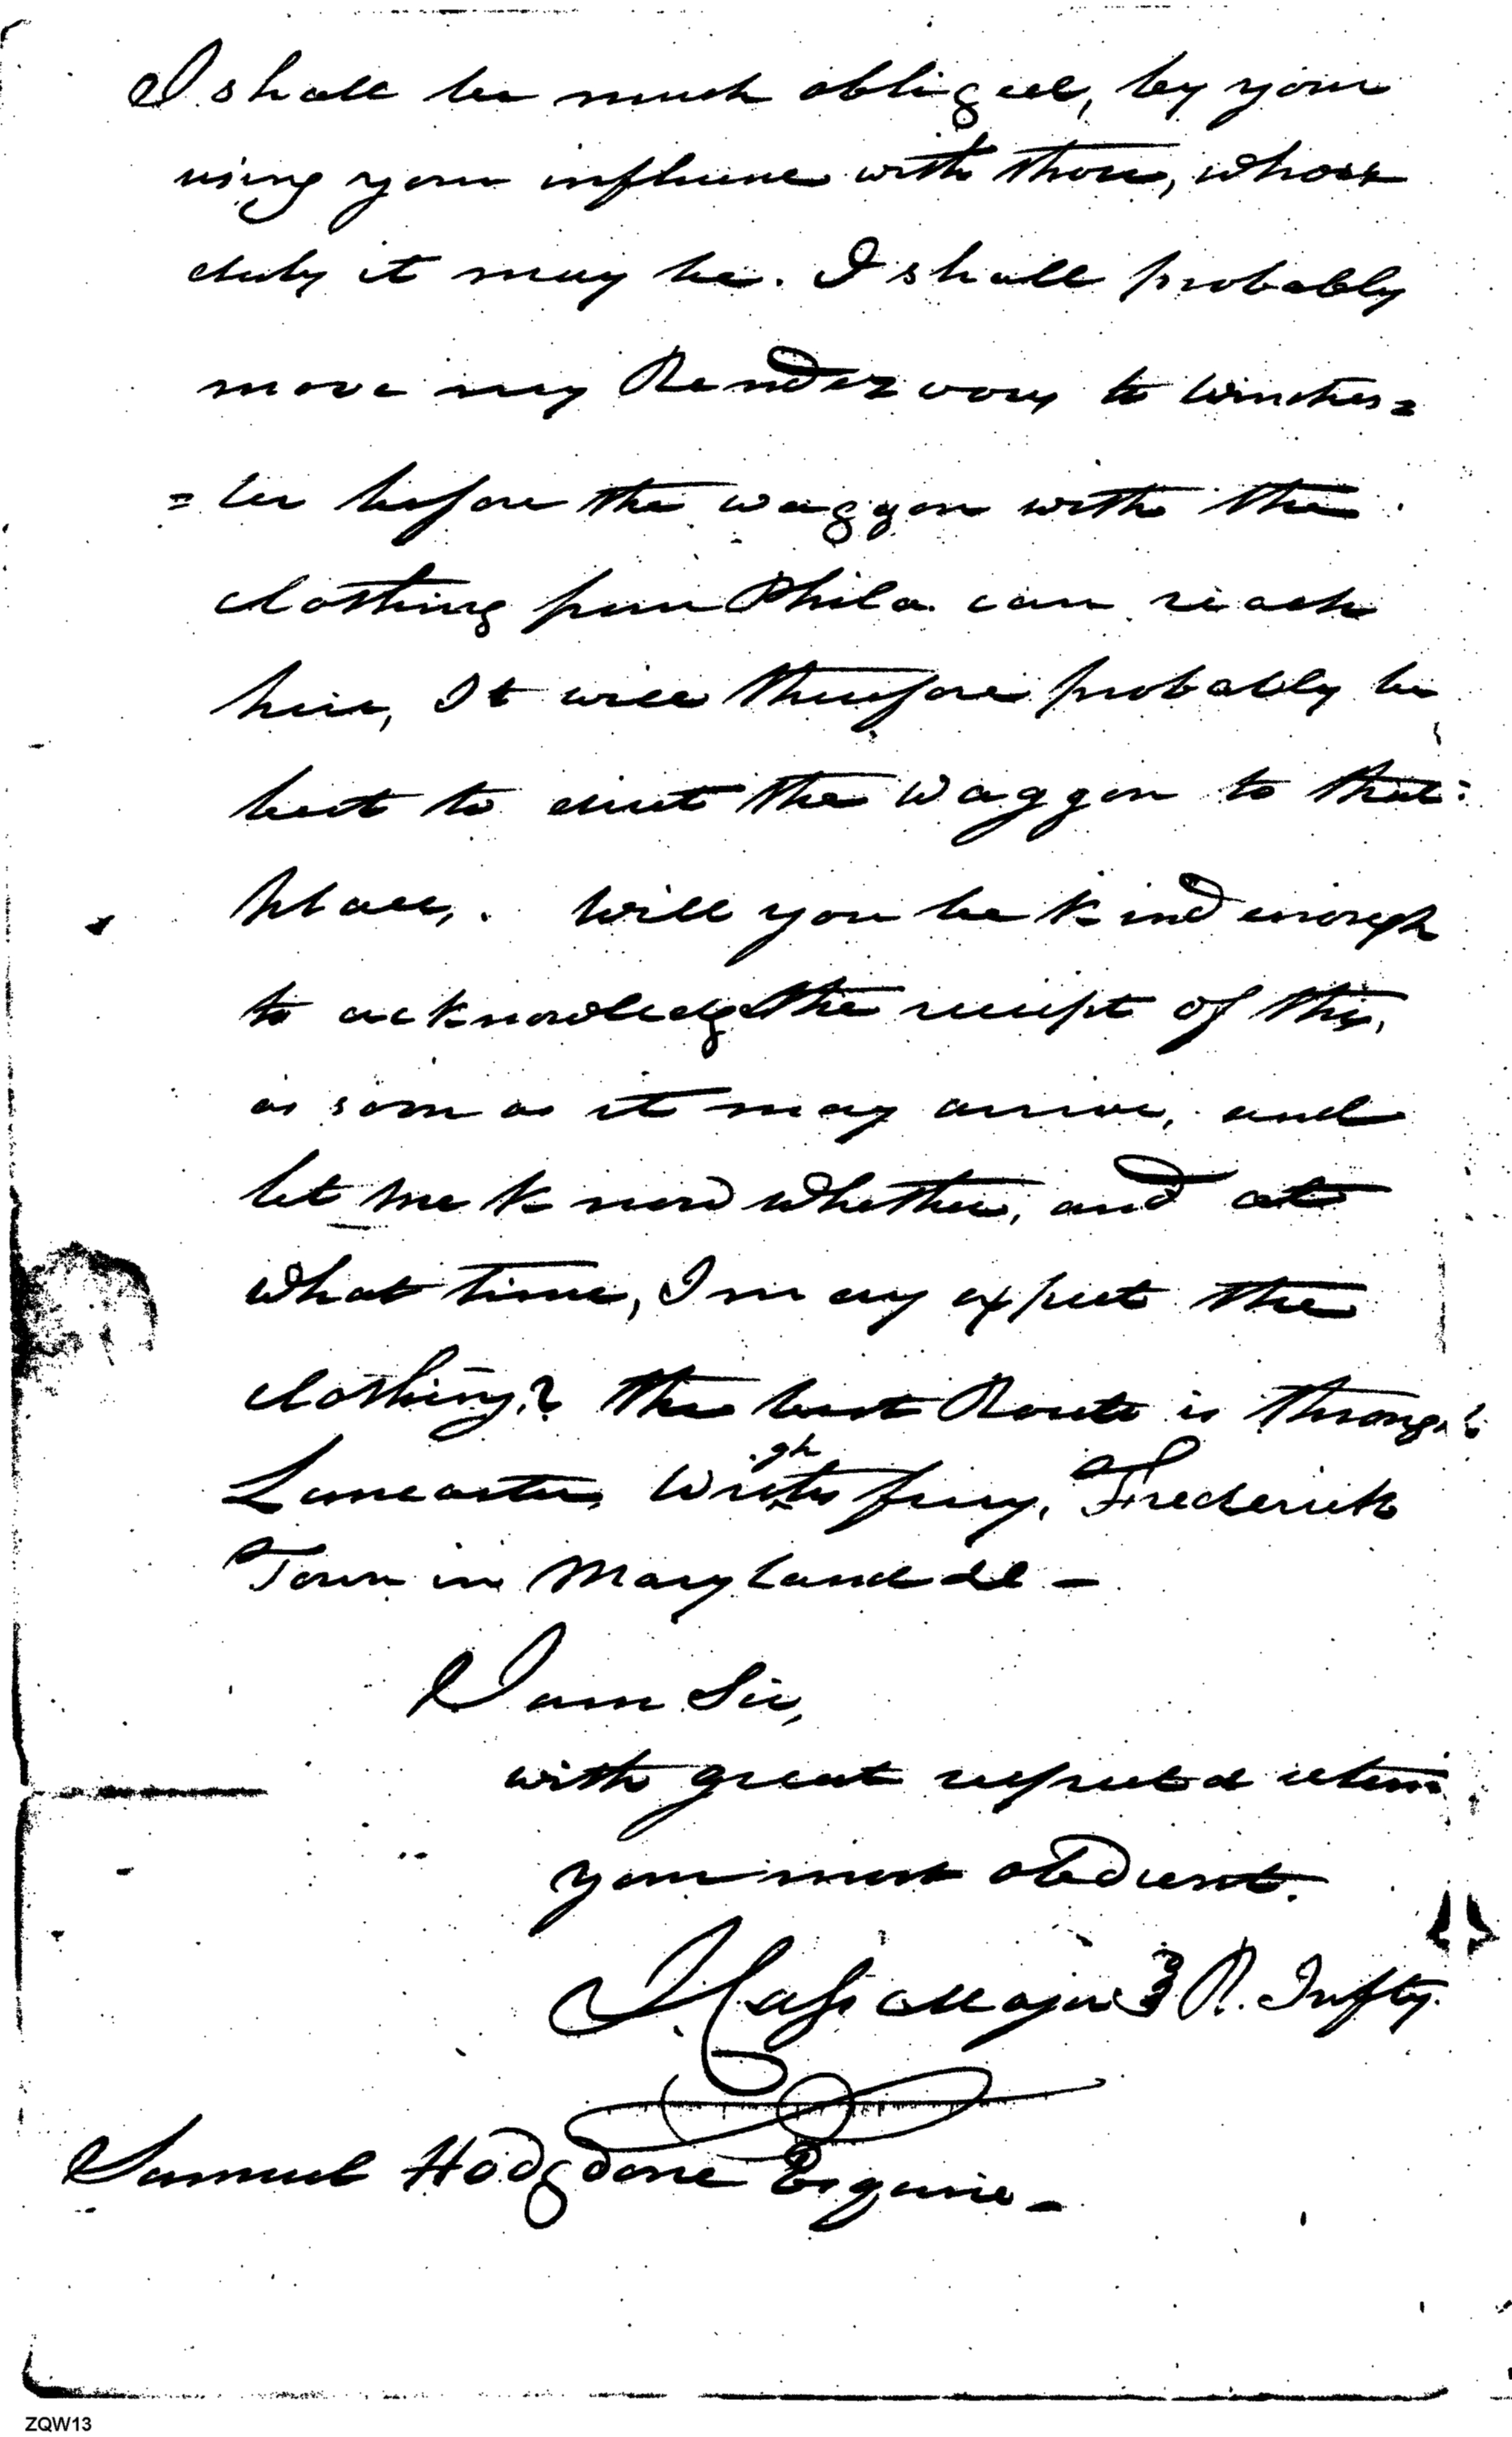 I shall be much obliged, by your
using your influence with those, whose
duty it may be. I shall probably
move my Rendezvous to Winches=
=ter before the waggon with the
clothing from Phila. can reach
here, It will therefore probably be
best to direct the Waggon to that
place,. Will you be kind enough
to acknowledge the receipt of this,
as soon as it may arrive, and
let me know whether, and at
what time, I may expect the
clothing? The best Route is through
Lancaster, Wrights ferry, Frederick
Town in Maryland &c –
I am Sir,
with great respect & esteem
your most obedient.
J. Cass Major 3 R. Infty.
Samuel Hodgdone Esquire –
ZQW13